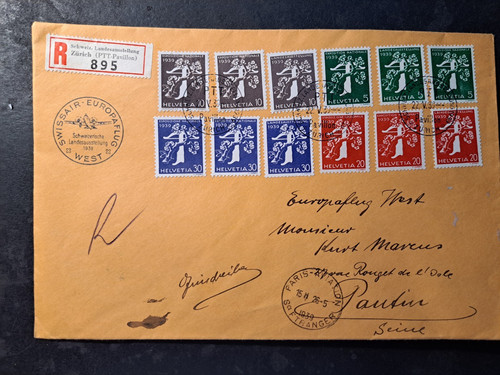 R
Schweiz. Landesausstellung
Zürich (PTT-Pavillon)
895
SWISSAIR-EUROPAFLUG
Schweizerische
Landesausstellung
1939
WEST
1939 1939 1939 LANDESAUSSTELLUNG 1939
10 10 10 5 5 5
HELVETIA HELVETIA HELVETIA HELVETIA HELVETIA HELVETIA
1939 1939 1939 1939 1939 1939
30 30 30 20 20 20
HELVETIA HELVETIA HELVETIA HELVETIA HELVETIA HELVETIA
Europaflug West
Monsieur
Kurt Marcus
Rouget de l'Isle
Pantin
Seine
R
PARIS-AVION
1939
ETRANGER